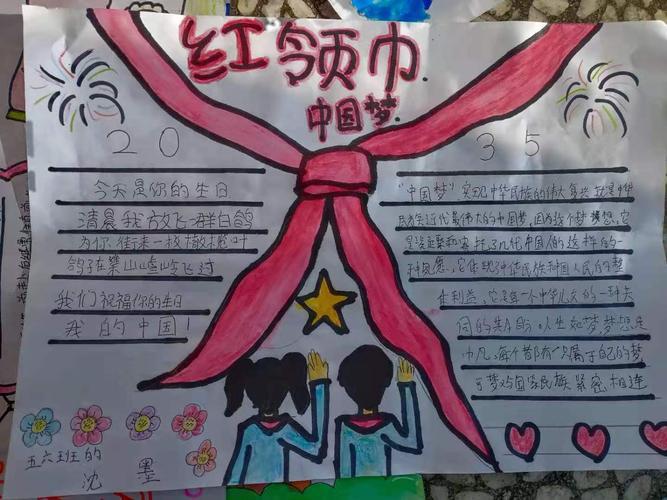 红领巾
中国梦
20
35
今天是你的生日
清晨我放飞一群白鸽
为你衔来一枚橄榄叶
鸽子在崇山峻岭飞过
我们祝福你的生日
我的中国!
"中国梦"实现中华民族的伟大复兴就是中华
民族近代最伟大的中国梦,因为这个梦想,它
是凝聚和寄托了几代中国人的这样的一
种夙愿,它体现了中华民族和中国人民的
它是每一个中华儿女的一种共
同的
每个都有一只属于自己的梦
梦对国家民族紧密相连
五六班的
沈墨